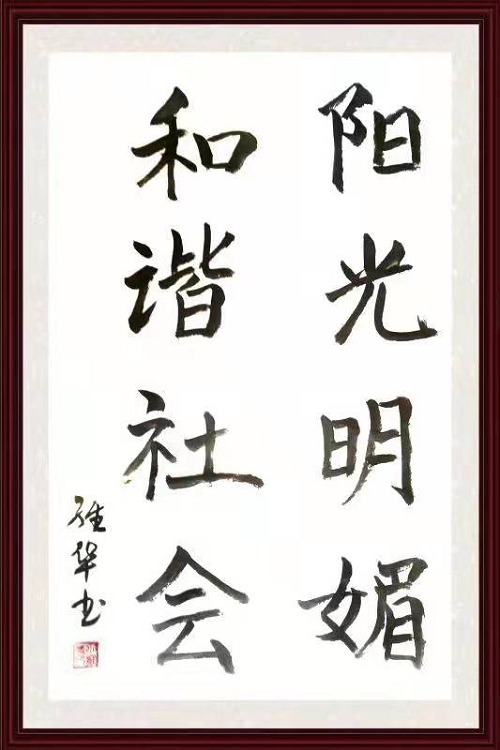 阳光明媚
和谐社会
雅华书